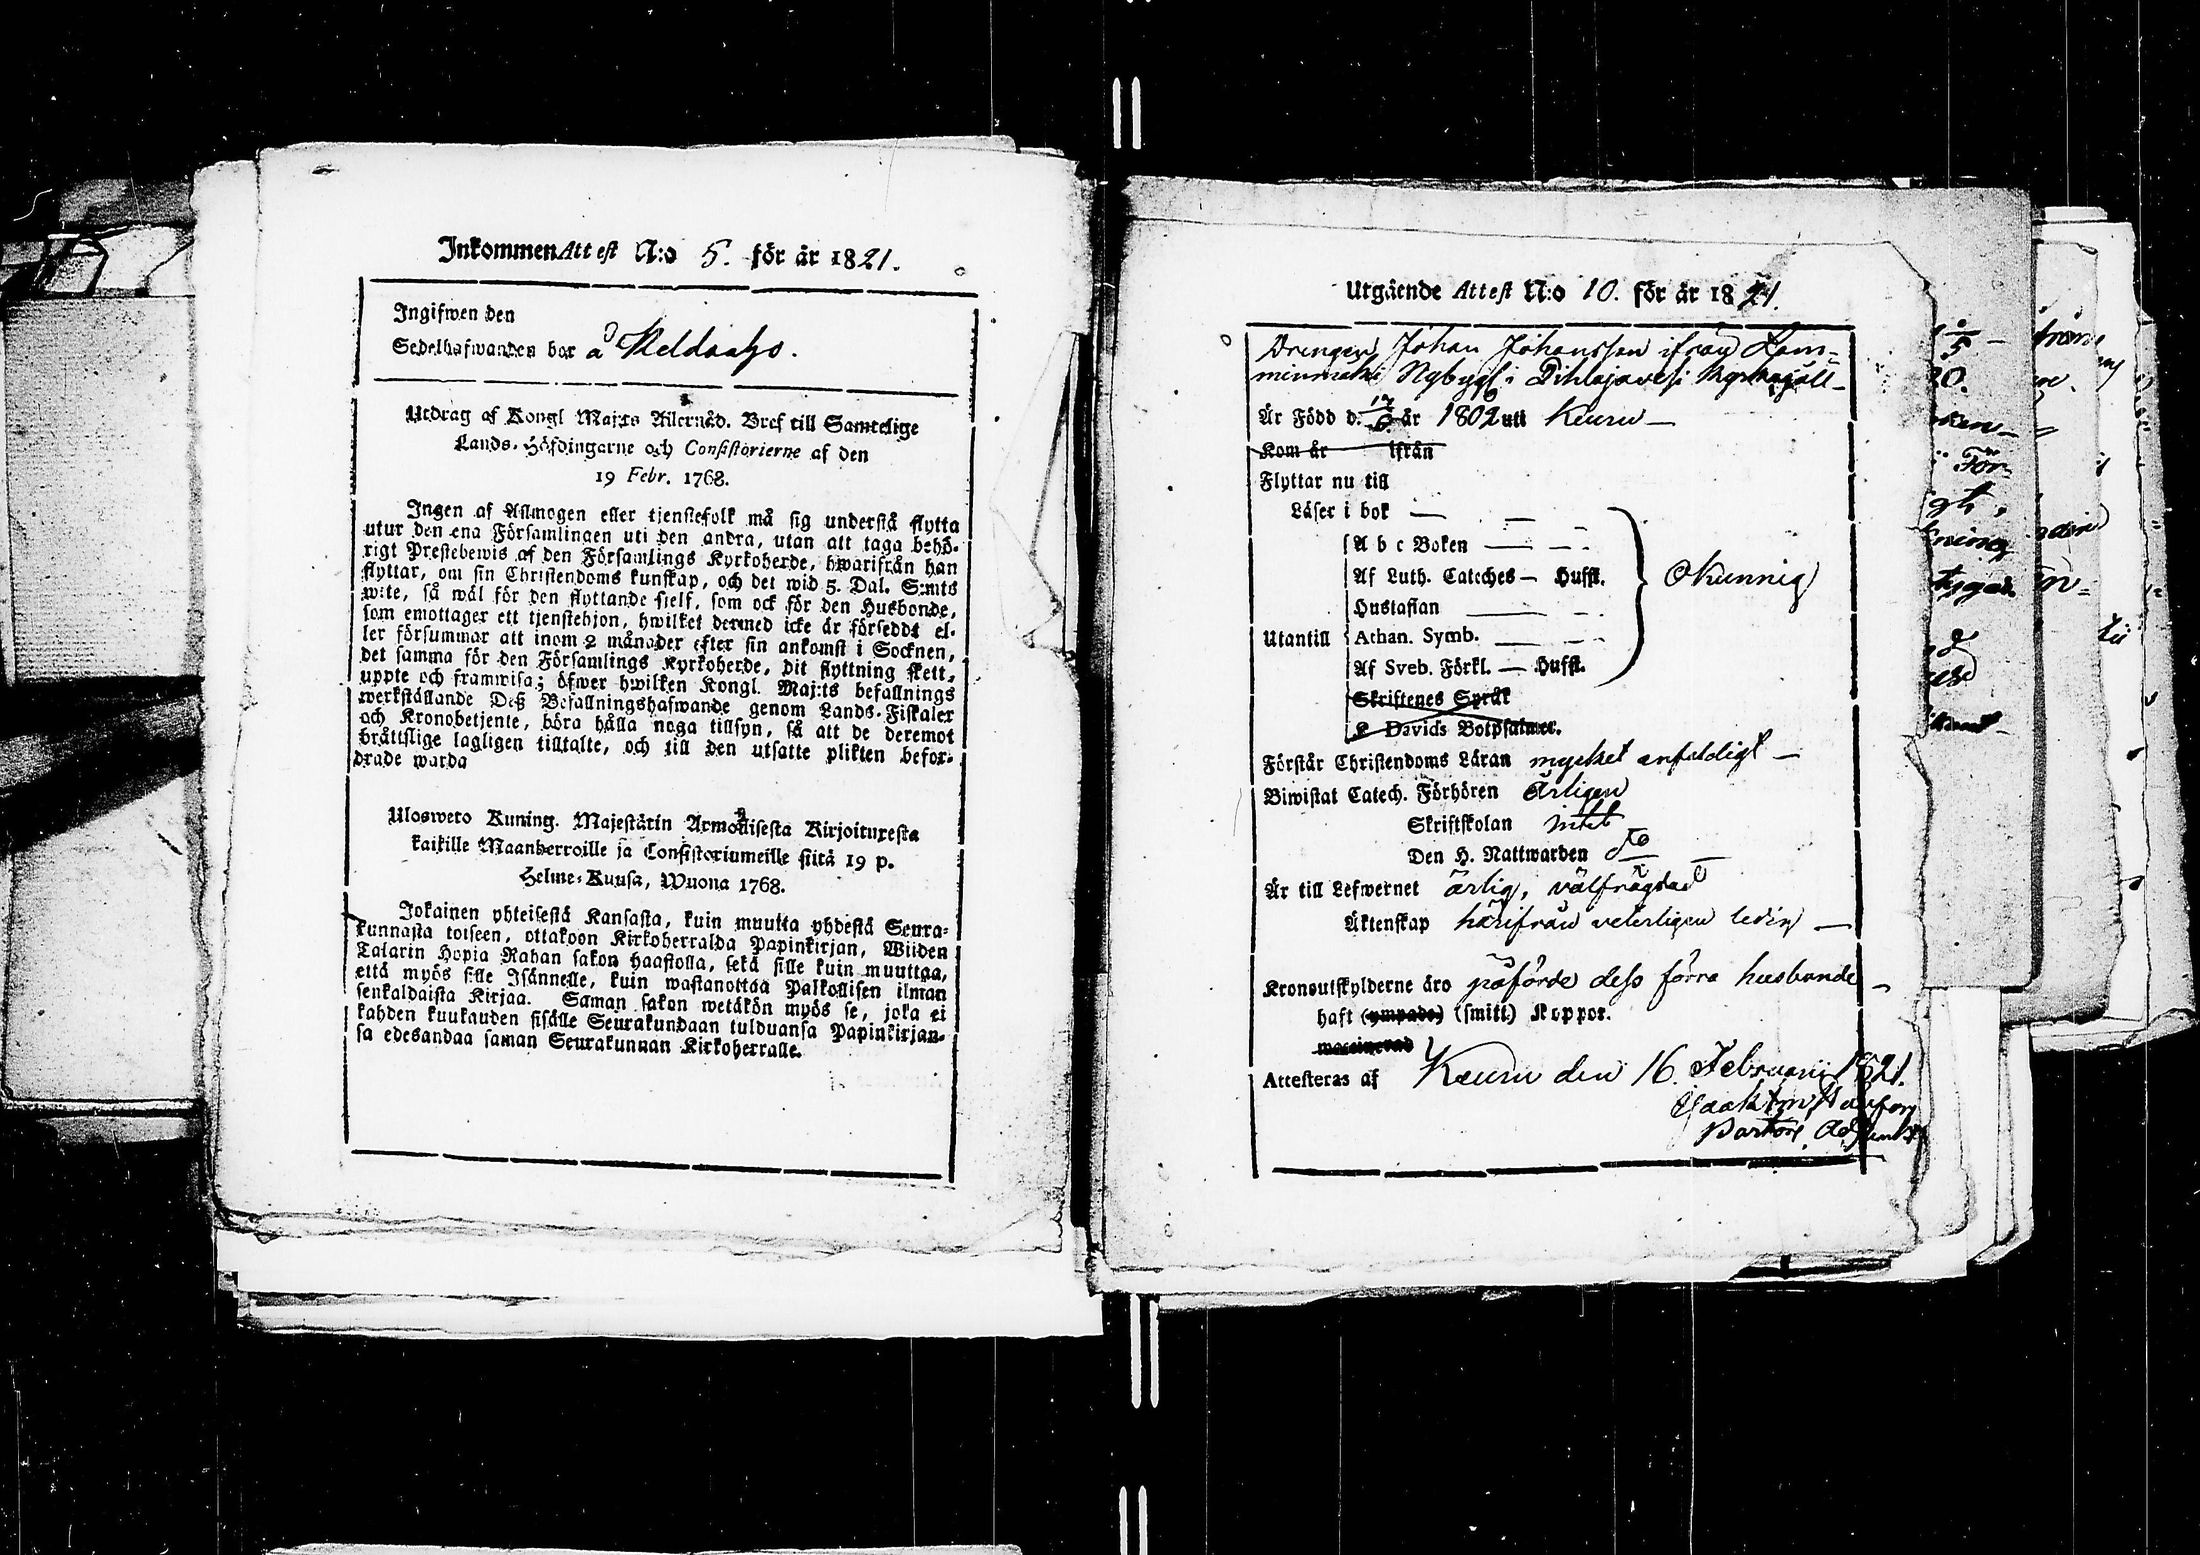 Inkommen Attest N:o 5. för år 1821.
Ingifwen den
Sedelhafwanden bor å Keldaaho.
Utdrag af Kongl Maj:ts Allernåd. Bref till Samtelige
Lands-Höfdingarne och Consistorierne af den
19 Febr. 1768.
Ingen af Allmogen eller tjenstefolk må sig understå flytta
utur den ena Församlingen uti den andra, utan att taga behö-
rigt Prestebewis af den Församlings Kyrkoherde, hwarifrån han
flyttar, om sin Christendoms kunskap, och det wid 5. Dal. S:mts
wite, så wäl för den flyttande sjelf, som ock för den Husbonde,
som emottager ett tjenstehjon, hwilket dermed icke är försedt el-
ler försummar att inom 2 månader efter sin ankomst i Socknen,
det samma för den Församlings Kyrkoherde, dit flyttning skett,
uppte och framwisa; öfwer hwilken Kongl. Maj:ts befallnings
werkställande Deß Befallningshafwande genom Lands-Fiskaler
och Kronobetjente, böra hålla noga tillsyn, så att de deremot
bråttslige lagligen tilltalte, och till den utsatte plikten befor-
drade warda
Ulosweto Kuning. Majestätin Armollisesta Kirjoituxesta
kaikille Maanherroille ja Consistoriumeille siitä 19 p.
Helme-Kuusa, Wuona 1768.
Jokainen yhteisestä Kansasta, kuin muutta yhdestä Seura-
kunnasta toiseen, ottakoon Kirkoherralda Papinkirjan, Wiiden
Talarin Hopia Rahan sakon haastolla, sekä sille kuin muuttaa,
että myös sille Isännelle, kuin wastanottaa Palkollisen ilman
senkaldaista Kirjaa. Saman sakon wetäkön myös se, joka ei
kahden kuukauden sisälle Seurakundaan tulduansa Papinkirjan-
sa edesandaa saman Seurakunnan Kirkoherralle.
Utgående Attest N:o 10. för år 1821.
Drengen Johan Johansson ifrån Lam-
minmäki Nybygge i Pihlajavesi Kyrkogäll
Är Född d. 17/6 år 1802 uti Keuru
Kom år ifrån
Flyttar nu till
Läser i bok
A b c Boken
Af Luth. Cateches — Husfl.
Hustaflan
Okunnig
Utantill Athan. Symb.
Af Sveb. Förkl. — Husfl.
Skriftenes Språk
Davids Botpsalmer.
Förstår Christendoms Läran mycket enfaldigt
Biwistat Catech. Förhören Årligen
Skriftskolan intet
Den H. Nattwarden do
Är till Lefwernet ärlig, välfrägdad
Äktenskap härifrån veterligen ledig
Kronoutskylderne äro påförde dess förra husbonde
haft (ympade) (smitt) Koppor.
Attesteras af Keuru den 16. Februarii 1821.